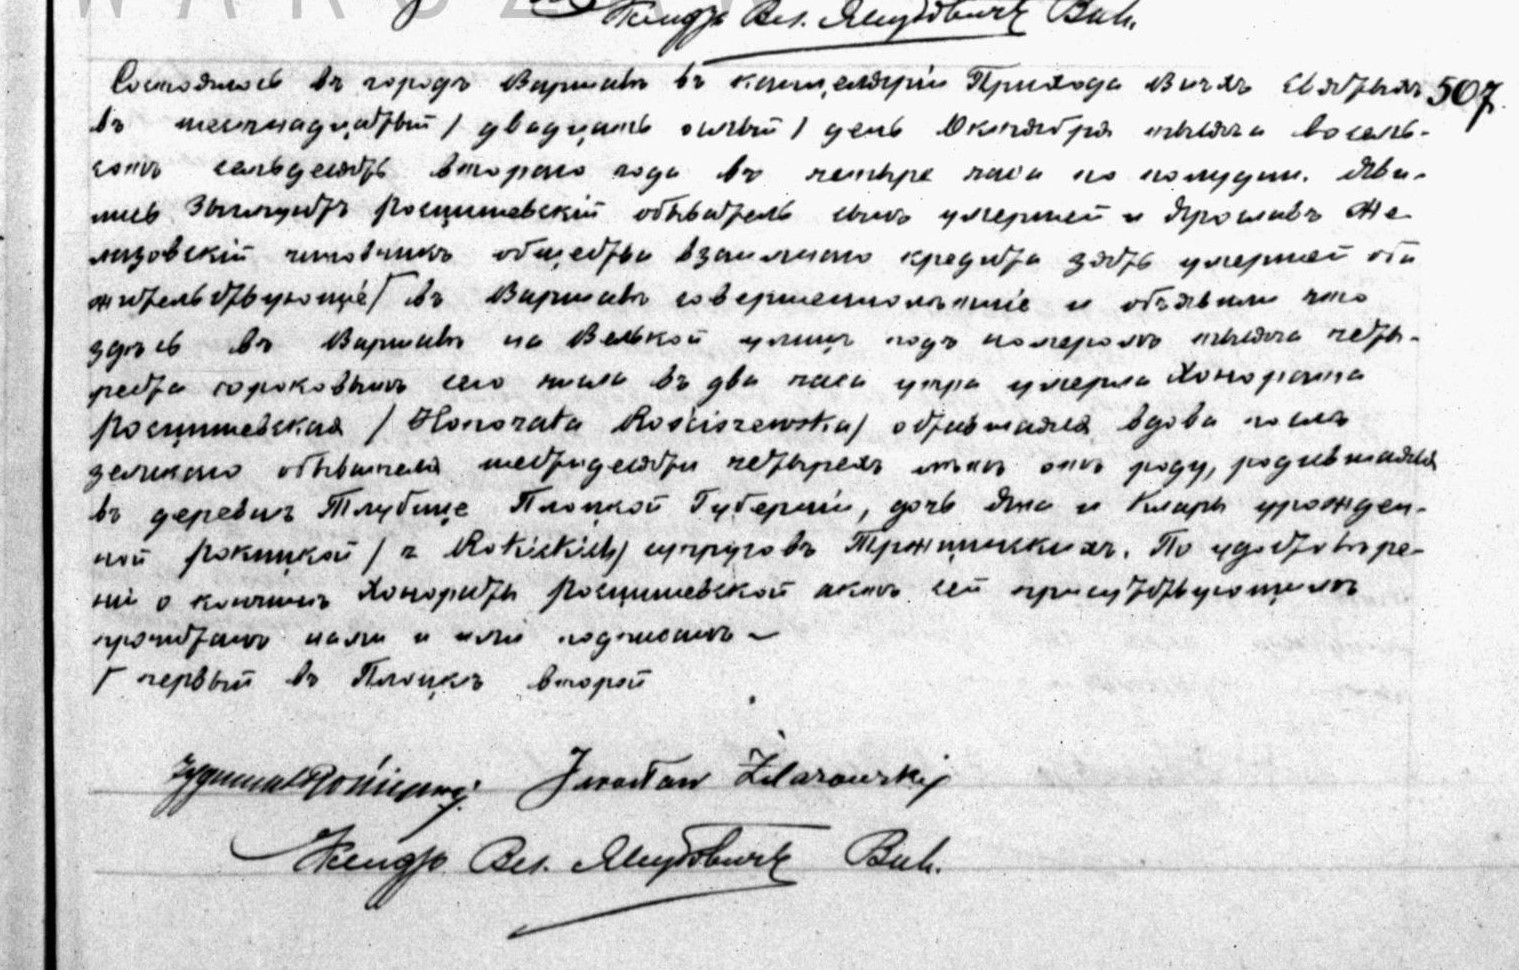 WARSZA
Ксендзъ Вл. Якубовичъ Вик.
Состоялось въ городѣ Варшавѣ въ канцеляріи Прихода Всѣхъ Святыхъ 507.
въ шестнадцатый / двадцать осьмый / день Октября тысяча восемь-
сотъ семьдесятъ второго года въ четыре часа по полудни. Яви-
лись Зыгмунтъ Росцишевскій обыватель сынъ умершей и Ярославъ Же-
лязовскій чиновникъ общества взаимнаго кредита зять умершей оба
жительствующіе Г въ Варшавѣ совершеннолѣтніе и объявили что
здѣсь въ Варшавѣ на Велькой улицѣ подъ номеромъ тысяча четы-
реста сороковымъ сего числа въ два часа утра умерла Хонората
Росцишевская / Honorata Rościszewska / оставшаяся вдова послѣ
земскаго обывателя шестидесяти четырехъ лѣтъ отъ роду, родившаяся
въ деревнѣ Тлубице Плоцкой Губерніи, дочь Яна и Клары урожден-
ной Рокицкой / z Rokickich / супруговъ Тржцинскихъ. По удостовѣре-
ніи о кончинѣ Хонораты Росцишевской актъ сей присутствующимъ
прочитанъ нами и ими подписанъ ~
Г первый въ Плоцкѣ второй
Zygmunt Rościszewski Jarosław Żelazowski
Ксендзъ Вл. Якубовичъ Вик.